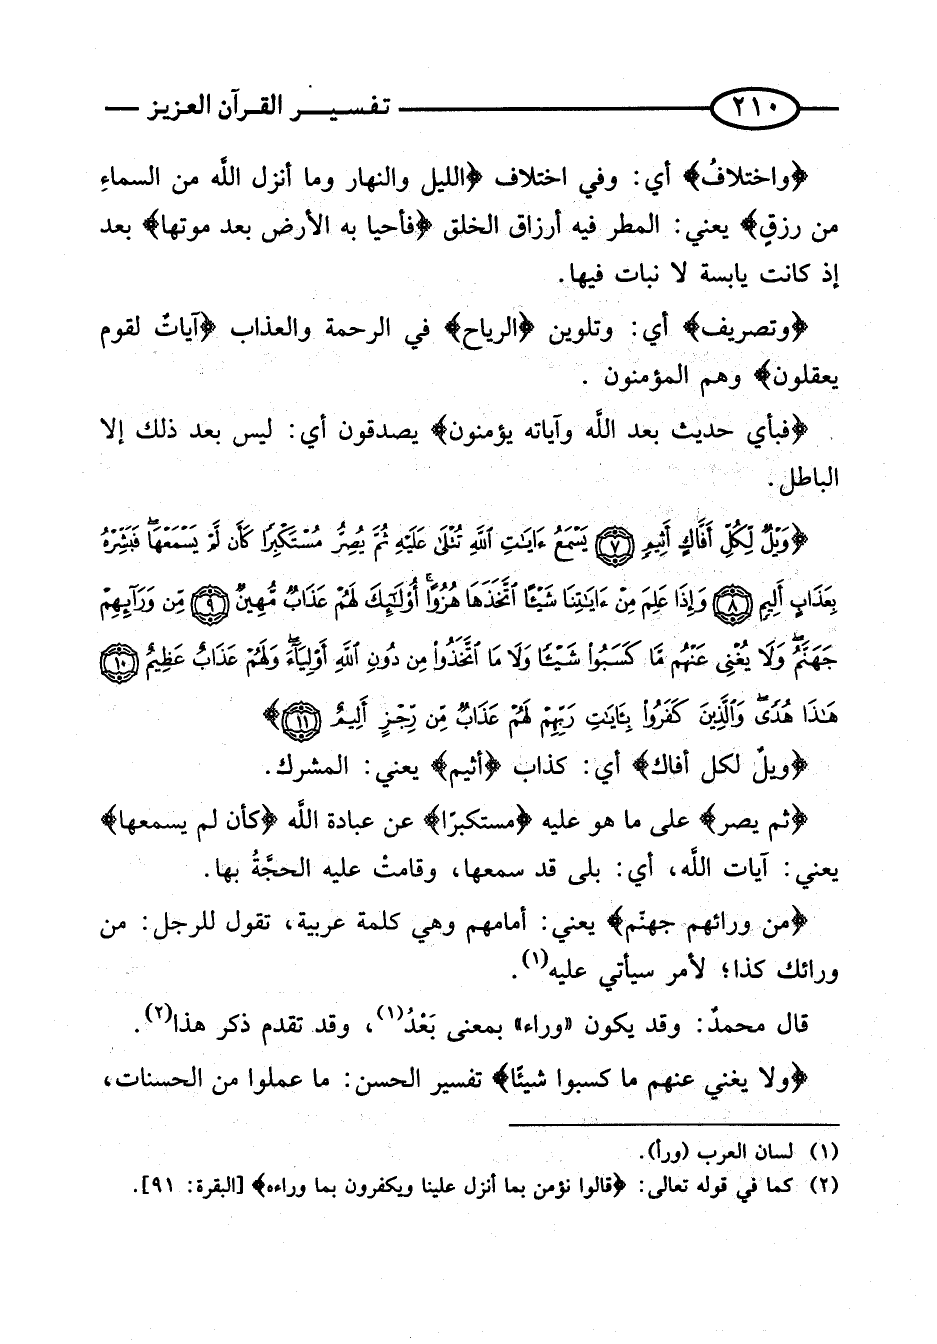 ٢١٠ تفسيـر القـرآن العـزيـز
﴿واختلافُ﴾ أي: وفي اختلاف ﴿الليل والنهار وما أنزل اللَّه من السماءِ
من رزقٍ﴾ يعني: المطر فيه أرزاق الخلق ﴿فأحيا به الأرض بعد موتها﴾ بعد
إذ كانت يابسة لا نبات فيها.
﴿وتصريف﴾ أي: وتلوين ﴿الرياح﴾ في الرحمة والعذاب ﴿آياتٌ لقوم
يعقلون﴾ وهم المؤمنون .
﴿فبأي حديث بعد اللَّه وآياته يؤمنون﴾ يصدقون أي: ليس بعد ذلك إلا
الباطل.
﴿وَيْلٌ لِّكُلِّ أَفَّاكٍ أَثِيمٍ ٧ يَسْمَعُ ءَايَٰتِ ٱللَّهِ تُتْلَىٰ عَلَيْهِ ثُمَّ يُصِرُّ مُسْتَكْبِرًا كَأَن لَّمْ يَسْمَعْهَا ۖ فَبَشِّرْهُ
بِعَذَابٍ أَلِيمٍ ٨ وَإِذَا عَلِمَ مِنْ ءَايَٰتِنَا شَيْـًٔا ٱتَّخَذَهَا هُزُوًا ۚ أُوْلَٰٓئِكَ لَهُمْ عَذَابٌ مُّهِينٌ ٩ مِّن وَرَآئِهِمْ
جَهَنَّمُ ۖ وَلَا يُغْنِى عَنْهُم مَّا كَسَبُوا۟ شَيْـًٔا وَلَا مَا ٱتَّخَذُوا۟ مِن دُونِ ٱللَّهِ أَوْلِيَآءَ ۖ وَلَهُمْ عَذَابٌ عَظِيمٌ ١٠
هَٰذَا هُدًى ۖ وَٱلَّذِينَ كَفَرُوا۟ بِـَٔايَٰتِ رَبِّهِمْ لَهُمْ عَذَابٌ مِّن رِّجْزٍ أَلِيمٌ ١١﴾
﴿ويلٌ لكل أفاك﴾ أي: كذاب ﴿أثيم﴾ يعني: المشرك.
﴿ثم يصر﴾ على ما هو عليه ﴿مستكبرًا﴾ عن عبادة اللَّه ﴿كأن لم يسمعها﴾
يعني: آيات اللَّه، أي: بلى قد سمعها، وقامتْ عليه الحجَّةُ بها.
﴿من ورائهم جهنّم﴾ يعني: أمامهم وهي كلمة عربية، تقول للرجل: من
ورائك كذا؛ لأمر سيأتي عليه(١).
قال محمدٌ: وقد يكون «وراء» بمعنى بَعْدُ(١)، وقد تقدم ذكر هذا(٢).
﴿ولا يغني عنهم ما كسبوا شيئًا﴾ تفسير الحسن: ما عملوا من الحسنات،
(١) لسان العرب (ورأ).
(٢) كما في قوله تعالى: ﴿قالوا نؤمن بما أنزل علينا ويكفرون بما وراءه﴾ [البقرة: ٩١].